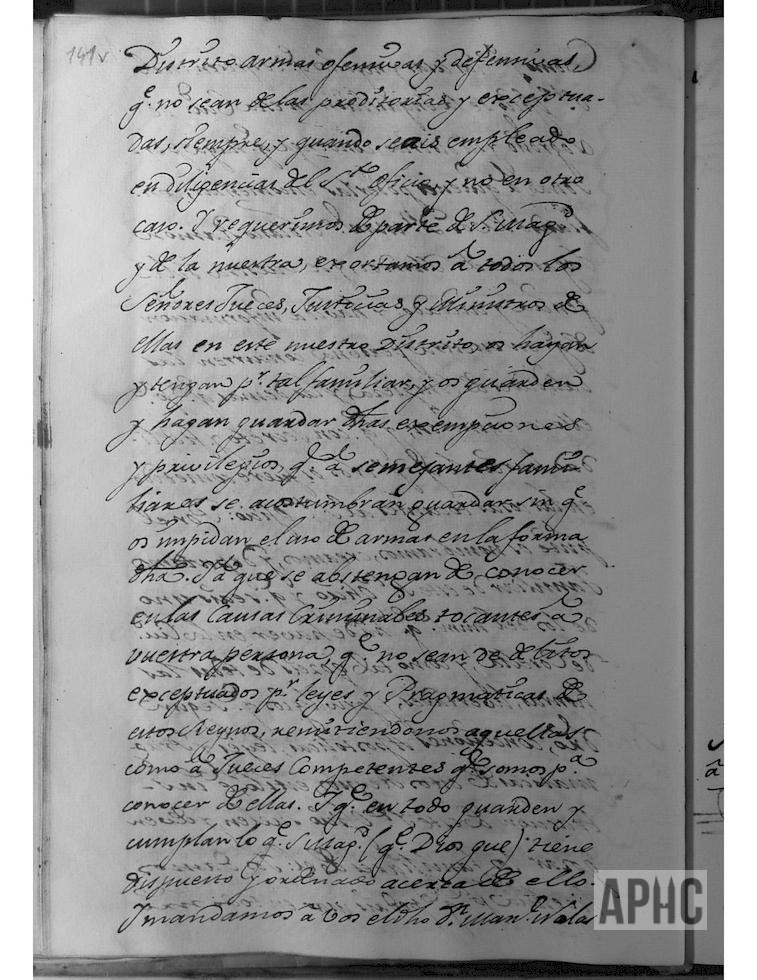 141v
Distrito armas ofensivas y defensivas,
q.e no sean de las proditorias, y exceptua-
das, siempre, y quando seais empleado
en diligencias del S.to Oficio, y no en otro
caso. Y requerimos de parte de S. Mag.d
y de la nuestra, exortamos â todos los
Señores Jueces, Justicias, y Ministros de
ellas en este nuestro Distrito, os hayan
y tengan p.r tal familiar, y os guarden
y hagan guardar dhas exempciones
y privilegios, q.e â semejantes fami-
liares se acostumbran guardar sin q.e
os impidan el uso de armas en la forma
dha. Y â que se abstengan de conocer
en las Causas Criminales tocantes â
vuestra persona q.e no sean de delitos
exceptuados p.r leyes y Pragmaticas de
estos Reynos, remitiendonos aquellas
como â Jueces Competentes q.e somos p.a
conocer de ellas. Y q.e en todo guarden y
cumplan lo q.e S. Mag.d (q.e Dios gue) tiene
dispuesto y ordenado acerca de ello.
Y mandamos â vos el dho D.n Man.l
APHC